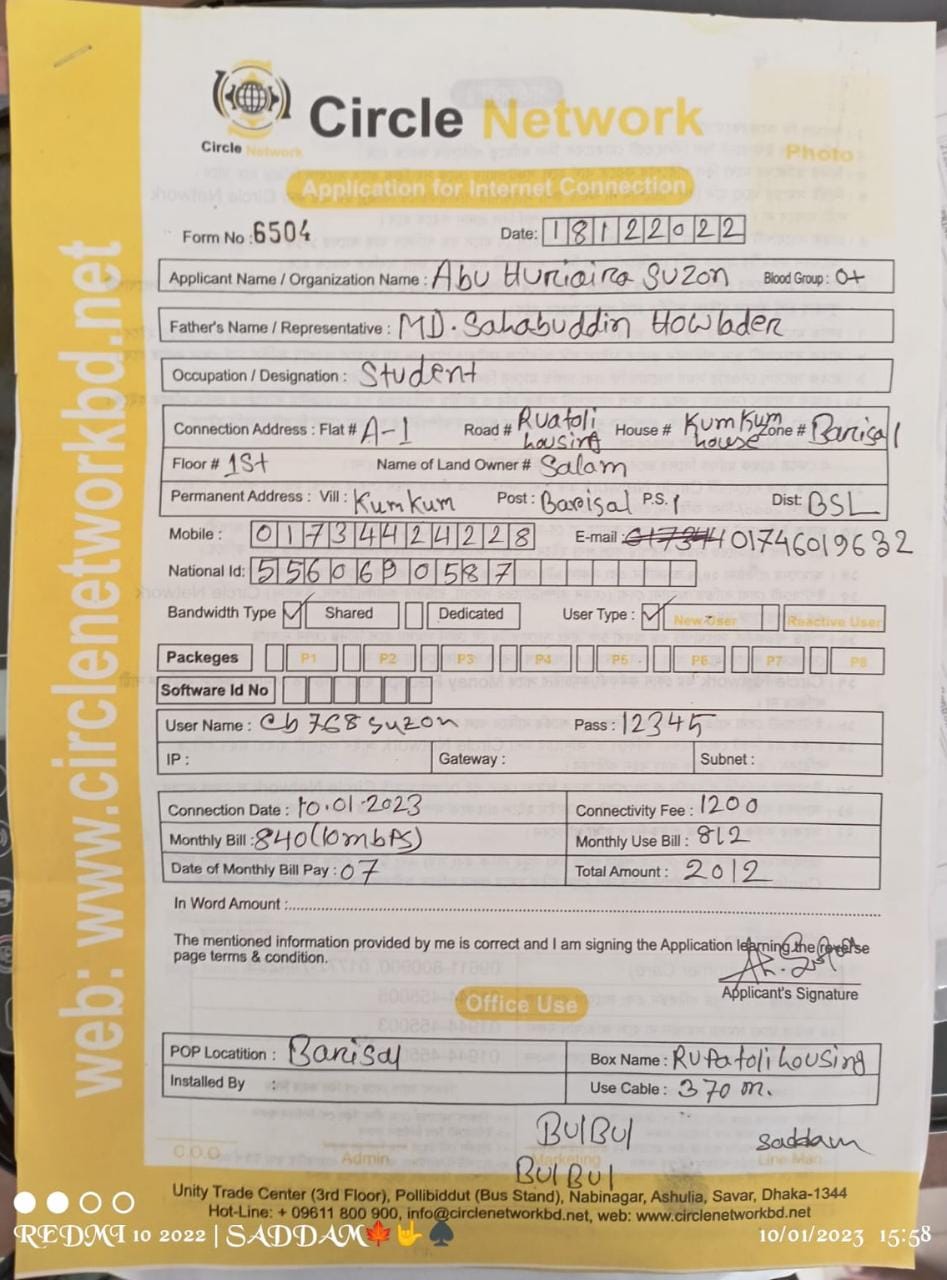 web: www.circlenetworkbd.net
Circle Network
Circle Network
Photo
Application for Internet Connection
Form No : 6504 Date: 18122022
Applicant Name / Organization Name : Abu Huriaira Suzon Blood Group : O+
Father's Name / Representative : MD. Sahabuddin Howlader
Occupation / Designation : Student
Connection Address : Flat # A-1 Road # Rupatoli housing House # KumKum house Zone # Barisal
Floor # 1St Name of Land Owner # Salam
Permanent Address : Vill : KumKum Post : Barisal P.S. Dist: BSL
Mobile : 01734424228 E-mail : 01746019632
National Id: 5560690587
Bandwidth Type Shared Dedicated User Type : New User Reactive User
Packeges P1 P2 P3 P4 P5 P6 P7 P8
Software Id No
User Name : cb768suzon Pass : 12345
IP : Gateway : Subnet :
Connection Date : 10.01.2023 Connectivity Fee : 1200
Monthly Bill : 840(10mbps) Monthly Use Bill : 812
Date of Monthly Bill Pay : 07 Total Amount : 2012
In Word Amount :
The mentioned information provided by me is correct and I am signing the Application learning the reverse
page terms & condition.
Applicant's Signature
Office Use
POP Locatition : Barisal Box Name : Rupatoli housing
Installed By : Use Cable : 370 m.
BulBul Saddam
C.O.O Admin Marketing Line Man
BulBul
Unity Trade Center (3rd Floor), Pollibiddut (Bus Stand), Nabinagar, Ashulia, Savar, Dhaka-1344
Hot-Line: + 09611 800 900, info@circlenetworkbd.net, web: www.circlenetworkbd.net
REDMI 10 2022 | SADDAM🍁🤟♠️ 10/01/2023 15:58